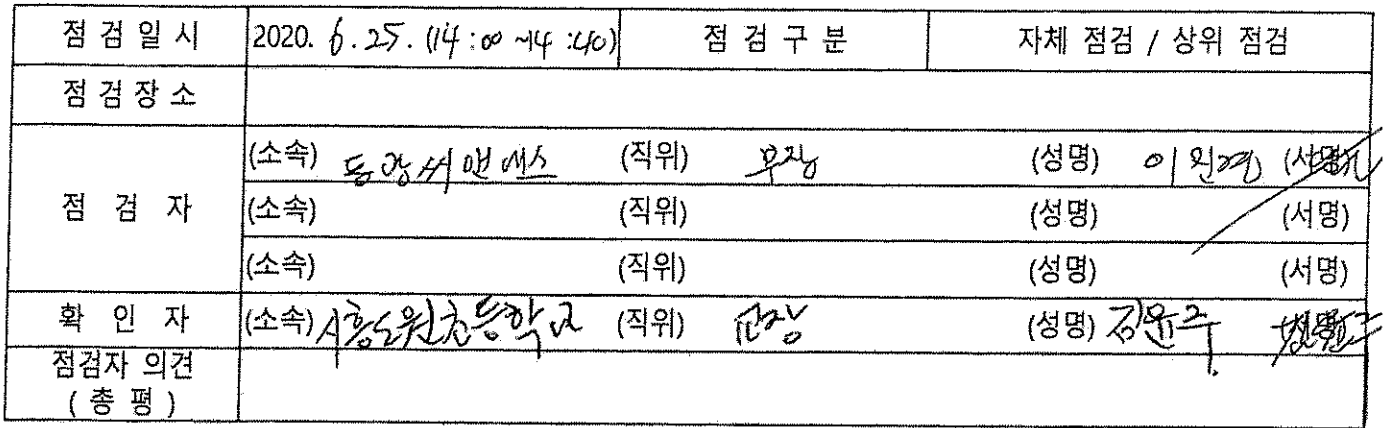 점 검 일 시 2020. 6.25. (14:00 ~14:40) 점 검 구 분 자체 점검 / 상위 점검
점 검 장 소
(소속) 동광씨앤에스 (직위) 부장 (성명) (서명)
점 검 자 (소속) (직위) (성명) (서명)
(소속) (직위) (성명) (서명)
확 인 자 (소속) 시흥도원초등학교 (직위) 교장 (성명)
점검자 의견
( 총 평 )